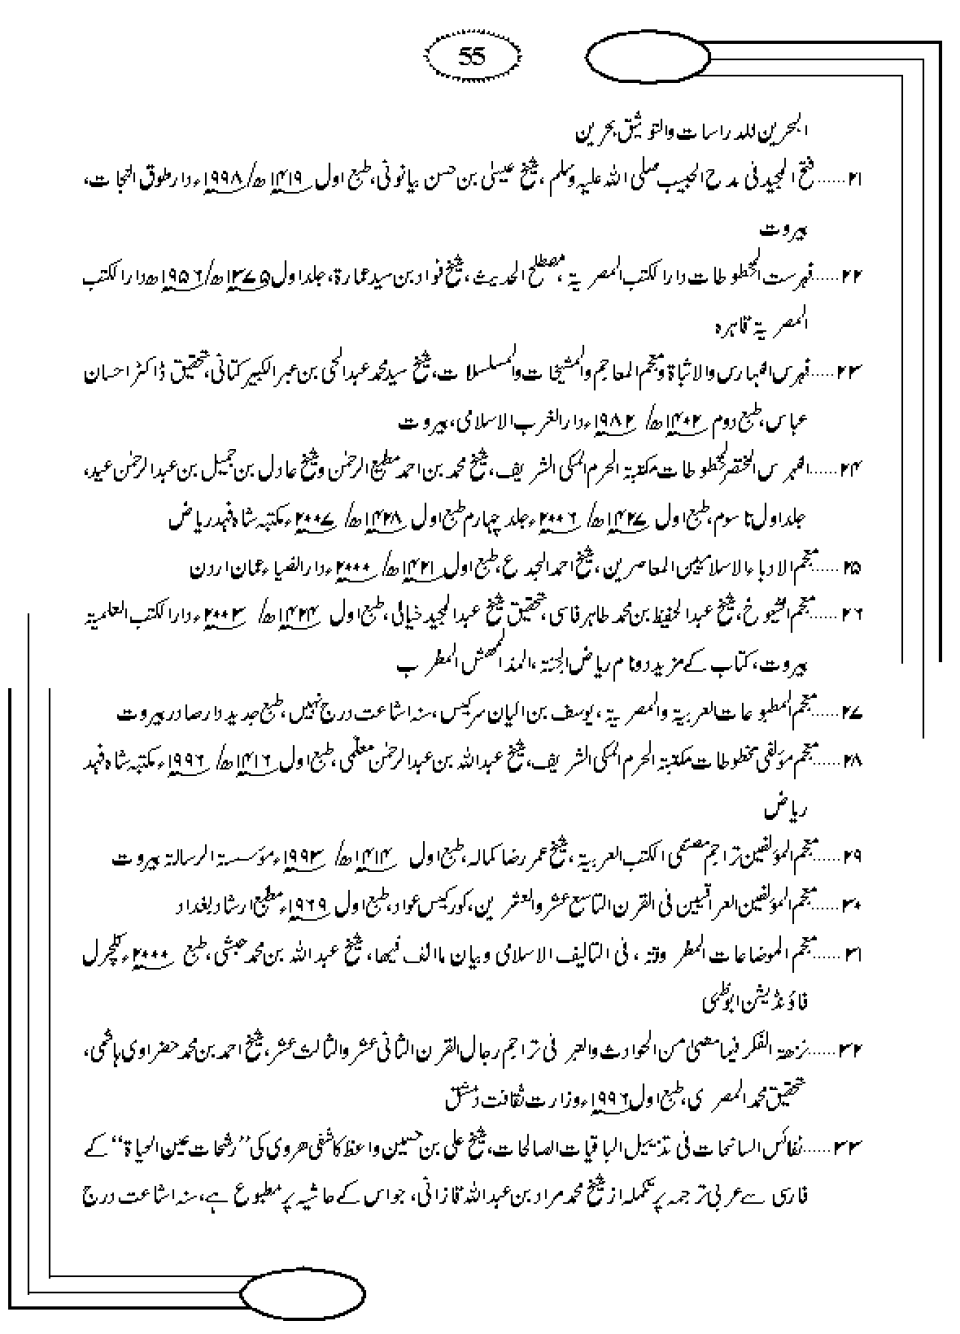 55
البحرین للدراسات والتوثیق بحرین
۲۱......فتح المجید فی مدح الحبیب صلی اللہ علیہ وسلم، شیخ عیسیٰ بن حسن بیانونی، طبع اول ۱۴۱۹ھ/۱۹۹۸ء دار طوق النجات،
بیروت
۲۲......فہرست المخطوطات دارالکتب المصریۃ، مصطلح الحدیث، شیخ فواد بن سید عمارۃ، جلد اول ۱۳۷۵ھ/۱۹۵۶ھ دارالکتب
المصریۃ قاہرہ
۲۳......فہرس الفہارس والاثباۃ ومعجم المعاجم والمشیخات والمسلسلات، شیخ سید محمد عبدالحی بن عبر الکبیر کتانی، تحقیق ڈاکٹر احسان
عباس، طبع دوم ۱۴۰۲ھ/ ۱۹۸۲ء دارالغرب الاسلامی، بیروت
۲۴......الفہرس المختصر لمخطوطات مکتبۃ الحرم المکی الشریف، شیخ محمد بن احمد مطیع الرحمٰن و شیخ عادل بن جمیل بن عبدالرحمٰن عید،
جلد اول تا سوم، طبع اول ۱۴۲۷ھ/ ۲۰۰۶ء جلد چہارم طبع اول ۱۴۲۸ھ/ ۲۰۰۷ء مکتبہ شاہ فہد ریاض
۲۵......معجم الادباء الاسلامیین المعاصرین، شیخ احمد الجدع، طبع اول ۱۴۲۱ھ/ ۲۰۰۰ء دارالضیاء عمان اردن
۲۶......معجم الشیوخ، شیخ عبدالحفیظ بن محمد طاہر فاسی، تحقیق شیخ عبدالمجید خیالی، طبع اول ۱۴۲۴ھ/ ۲۰۰۳ء دارالکتب العلمیۃ
بیروت، کتاب کے مزید دو نام ریاض الجنۃ، المدالمھش المطرب
۲۷......معجم المطبوعات العربیۃ والمصریۃ، یوسف بن الیان سرکیس، سنہ اشاعت درج نہیں، طبع جدید دار صادر بیروت
۲۸......معجم مولفی مخطوطات مکتبۃ الحرم المکی الشریف، شیخ عبداللہ بن عبدالرحمٰن معلّمی، طبع اول ۱۴۱۶ھ/ ۱۹۹۶ء مکتبہ شاہ فہد
ریاض
۲۹......معجم المؤلفین تراجم مصنفی الکتب العربیۃ، شیخ عمر رضا کحالہ، طبع اول ۱۴۱۴ھ/ ۱۹۹۳ء مؤسسۃ الرسالۃ بیروت
۳۰......معجم المؤلفین العراقیین فی القرن التاسع عشر والعشرین، کورکیس عواد، طبع اول ۱۹۶۹ء مطبع ارشاد بغداد
۳۱......معجم الموضاعات المطروقۃ، فی التالیف الاسلامی وبیان ماالف فیھا، شیخ عبداللہ بن محمد حبشی، طبع ۲۰۰۰ء کلچرل
فاؤنڈیشن ابوظہبی
۳۲......نزھۃ الفکر فیما مضیٰ من الحوادث والعبر فی تراجم رجال القرن الثانی عشر والثالث عشر، شیخ احمد بن محمد حضراوی ہاشمی،
تحقیق محمد المصری، طبع اول ۱۹۹۶ء وزارت ثقافت دمشق
۳۳......نفائس السانحات فی تذییل الباقیات الصالحات، شیخ علی بن حسین واعظ کاشفی ھروی کی ’’رشحات عین الحیاۃ‘‘ کے
فارسی سے عربی ترجمہ پر تکملہ از شیخ محمد مراد بن عبداللہ قازانی، جو اس کے حاشیہ پر مطبوع ہے، سنہ اشاعت درج